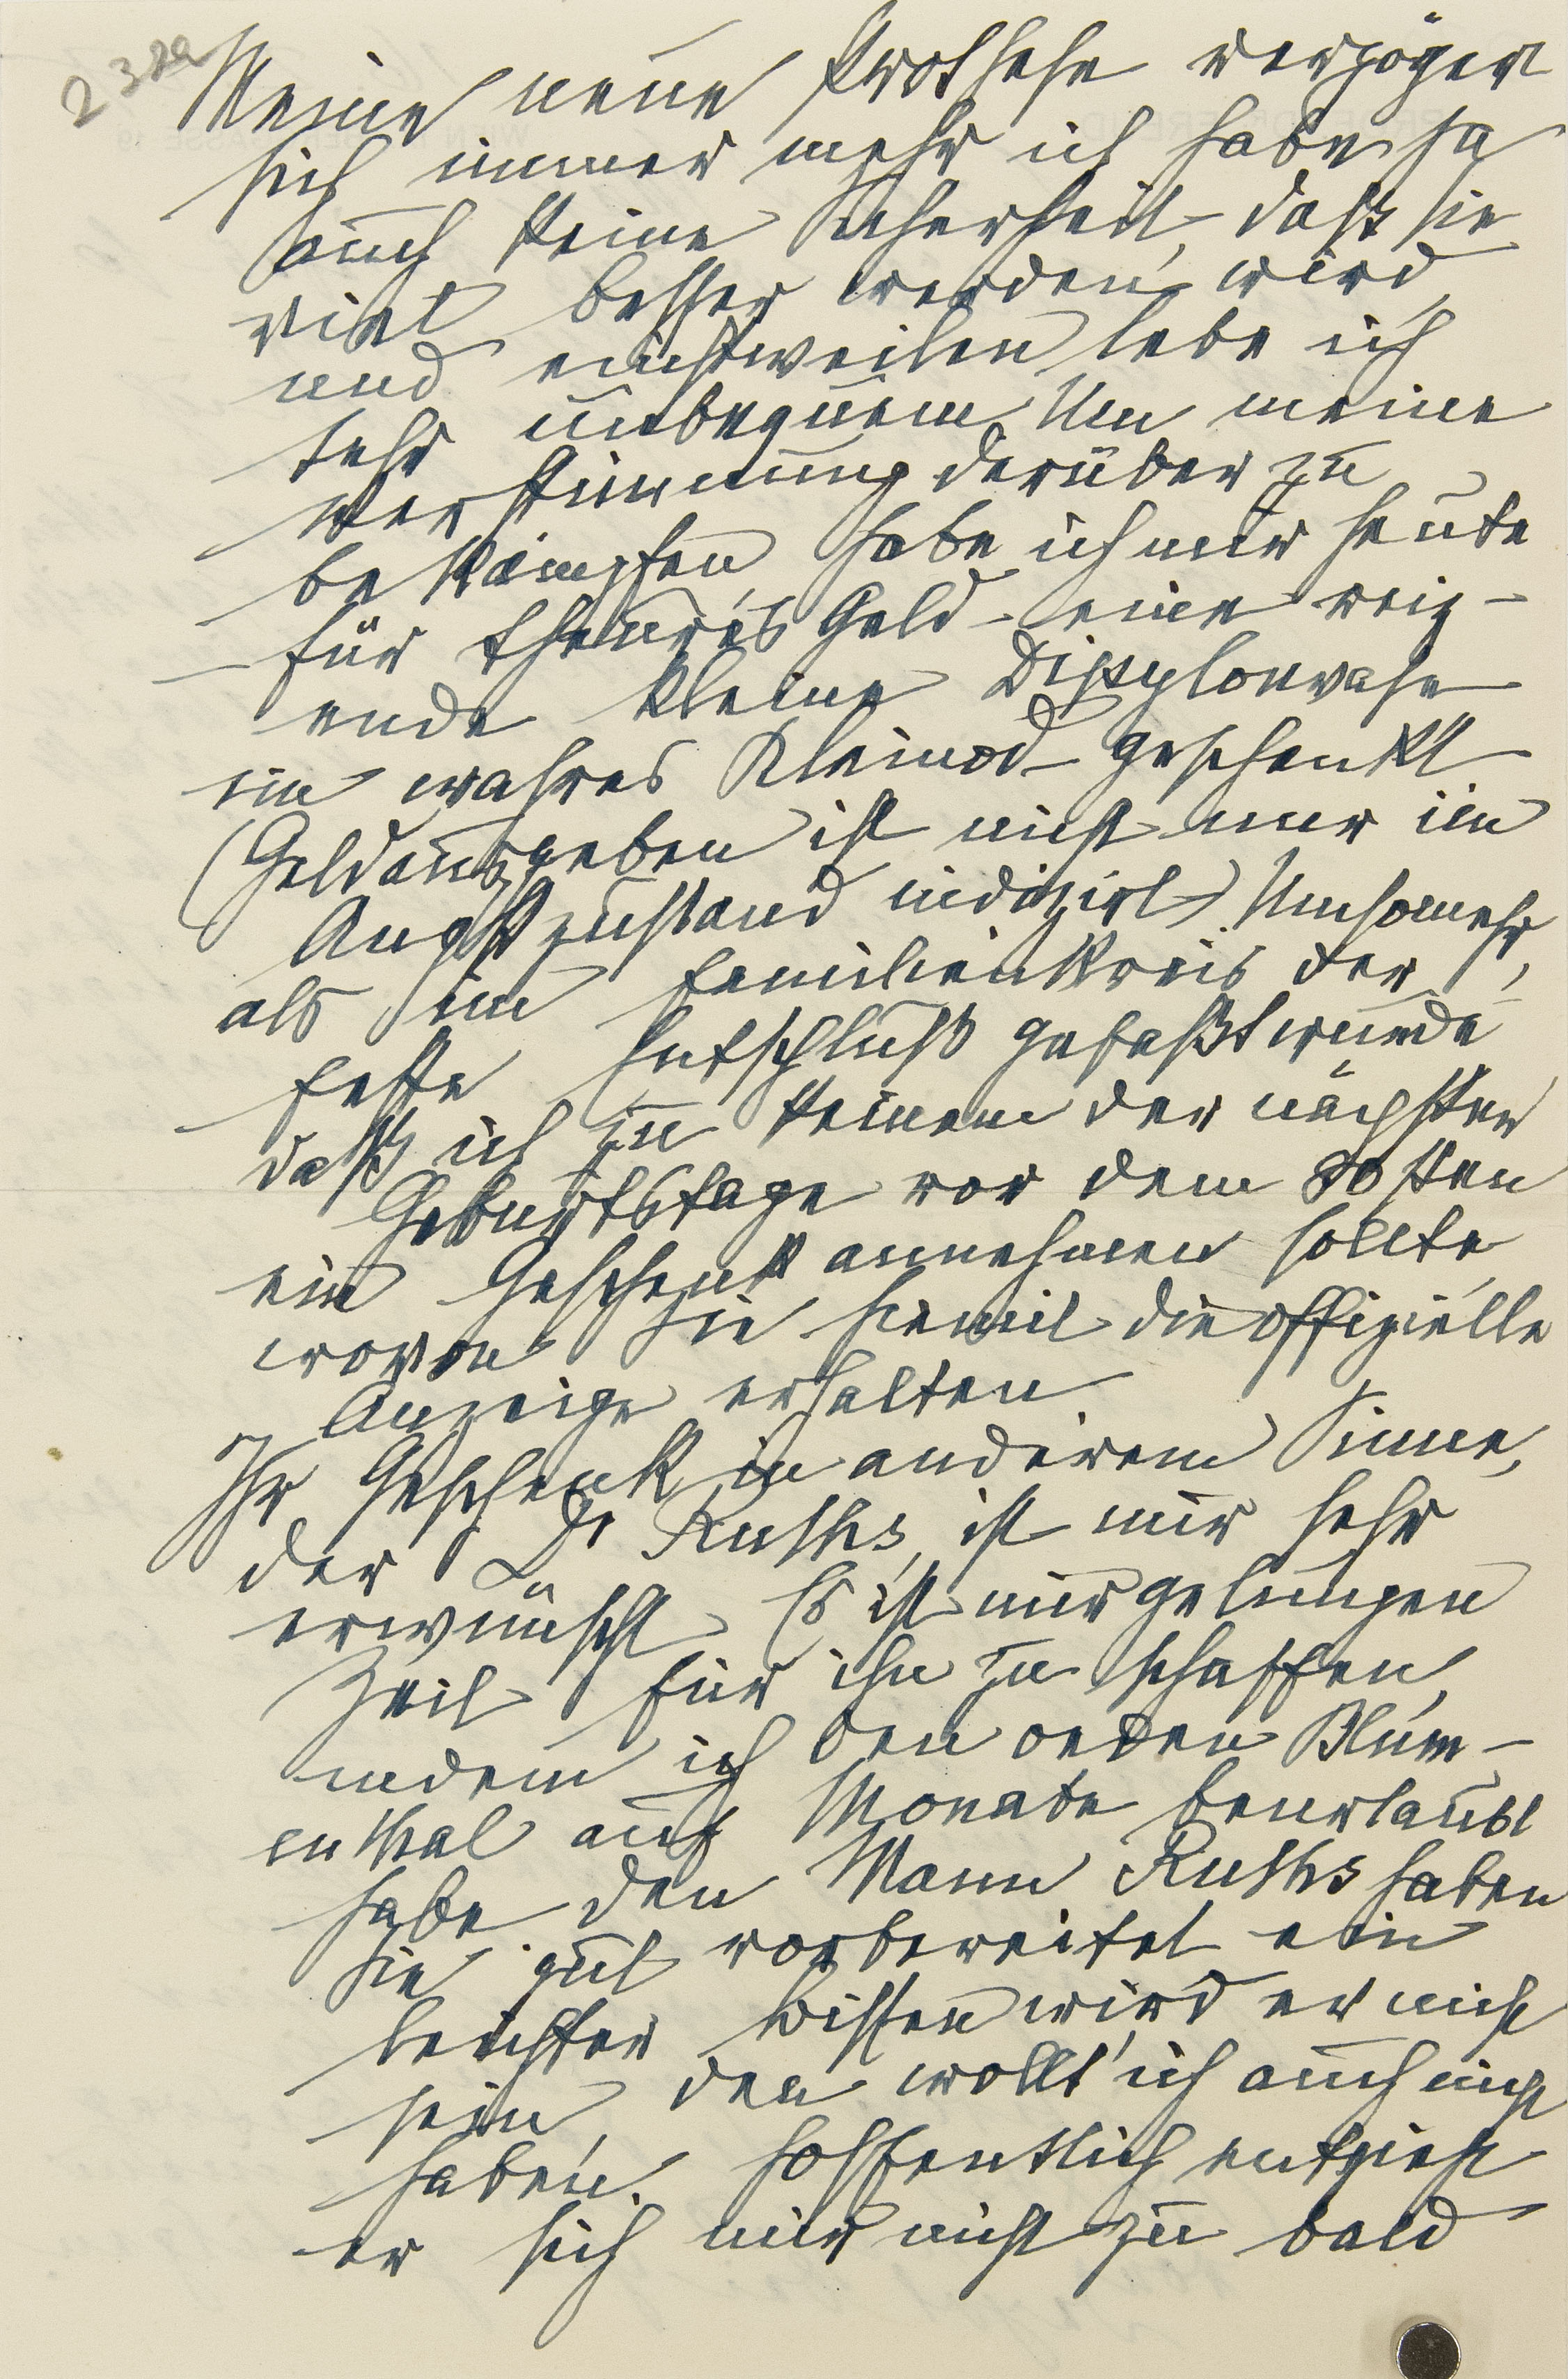 238a
Meine neue Prothese verzögert
sich immer mehr ich habe ja
auch keine Sicherheit, daß sie
viel besser werden wird,
und einstweilen lebe ich
sehr unbequem. Um meine
Verstimmung darüber zu
bekämpfen, habe ich mir heute
für theures Geld eine reiz-
ende kleine Dipylonvase
ein wahres Kleinod geschenkt
(Geldausgeben ist nicht nur im
Angstzustand indizirt) Umsomehr,
als im Familienkreis der
feste Entschluß gefaßt wurde
daß ich zu keinem der nächsten
Geburtstage vor dem 80sten
ein Geschenk annehmen sollte,
wovon Sie hiemit die offizielle
Anzeige erhalten.
Ihr Geschenk in anderem Sinne,
der Dr Ruths, ist mir sehr
erwünscht. Es ist mir gelungen
Zeit für ihn zu schaffen,
indem ich den oeden Blum-
enthal auf Monate beurlaubt
habe. den Mann Ruths haben
Sie gut vorbereitet ein
leichter Bissen wird er nicht
sein, den wollt' ich auch nicht
haben. Hoffentlich entzieht
er sich mir nicht zu bald